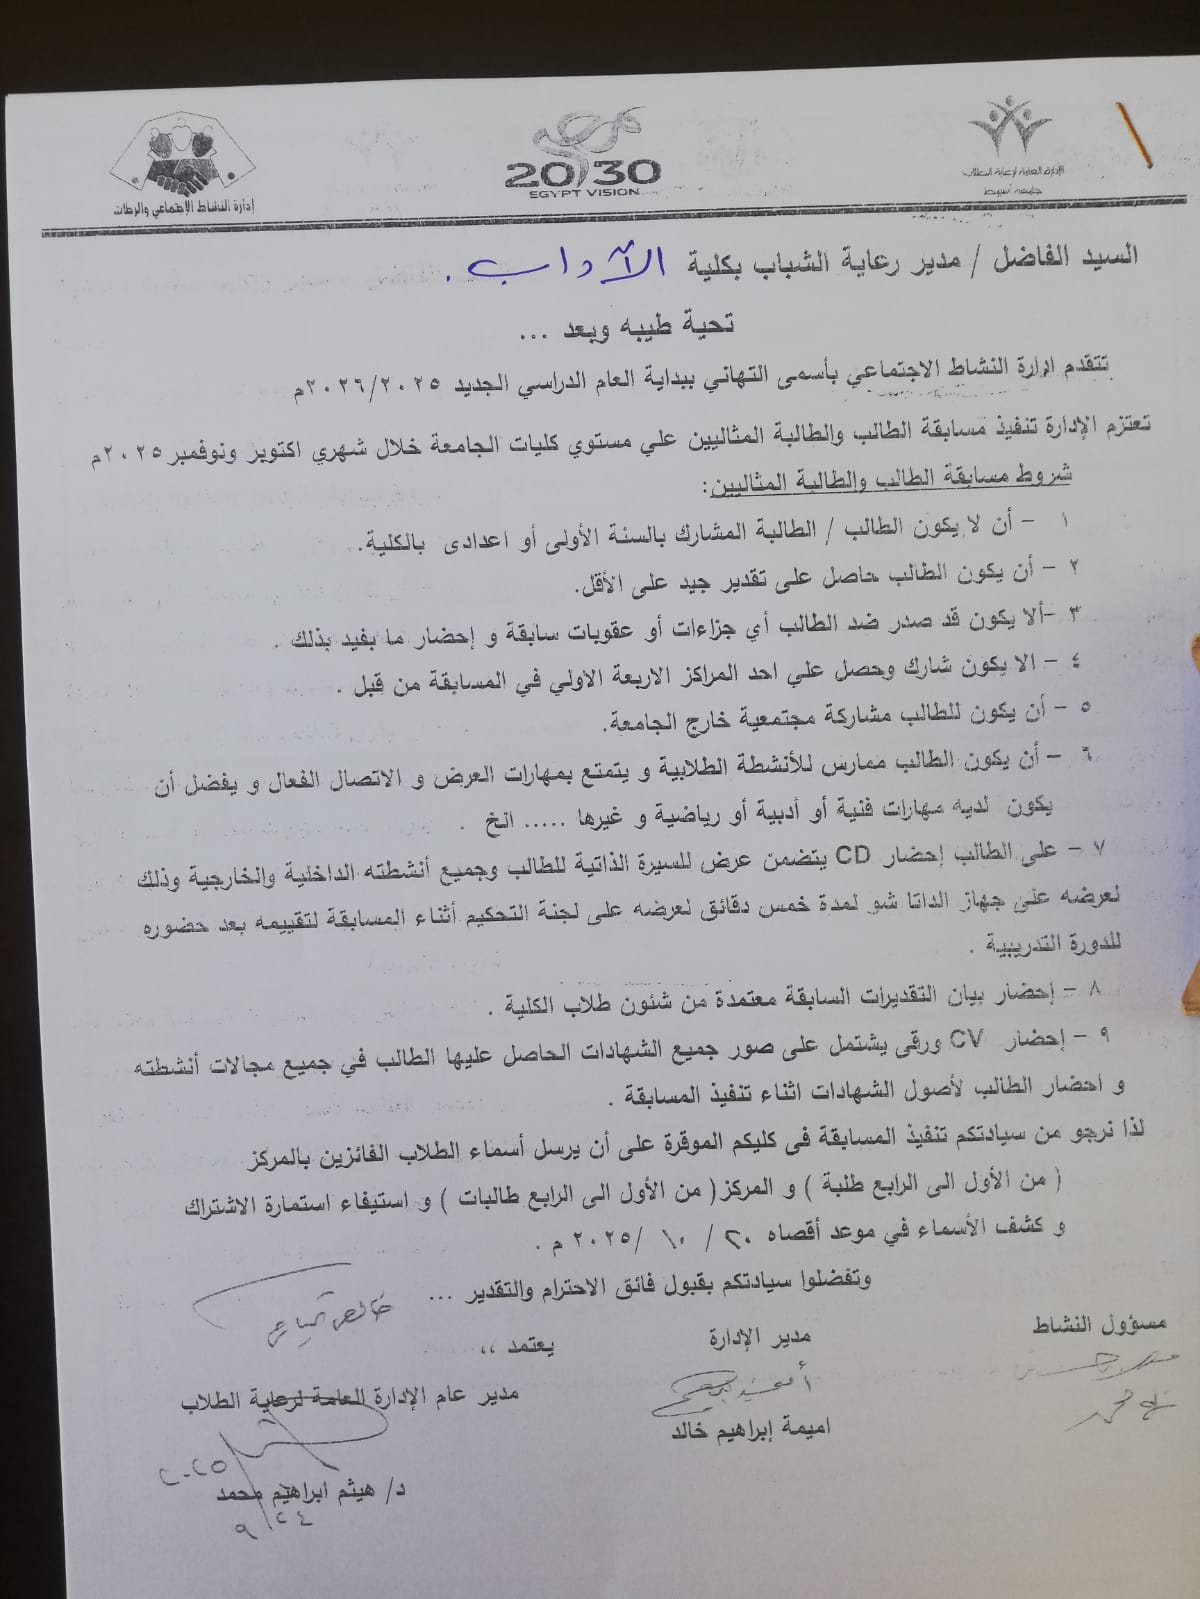 إدارة النشاط الإجتماعي والرحلات
2030
EGYPT VISION
الإدارة العامة لرعاية الطلاب
جامعة أسيوط
السيد الفاضل / مدير رعاية الشباب بكلية الآداب .
تحية طيبه وبعد ...
تتقدم إدارة النشاط الاجتماعي بأسمى التهاني ببداية العام الدراسي الجديد ٢٠٢٦/٢٠٢٥م
تعتزم الإدارة تنفيذ مسابقة الطالب والطالبة المثاليين علي مستوي كليات الجامعة خلال شهري اكتوبر ونوفمبر ٢٠٢٥م
شروط مسابقة الطالب والطالبة المثاليين:
١ - أن لا يكون الطالب / الطالبة المشارك بالسنة الأولى أو اعدادى بالكلية.
٢ - أن يكون الطالب حاصل على تقدير جيد على الأقل.
٣ -ألا يكون قد صدر ضد الطالب أي جزاءات أو عقوبات سابقة و إحضار ما يفيد بذلك .
٤ - الا يكون شارك وحصل علي احد المراكز الاربعة الاولي في المسابقة من قبل .
٥ - أن يكون للطالب مشاركة مجتمعية خارج الجامعة.
٦ - أن يكون الطالب ممارس للأنشطة الطلابية و يتمتع بمهارات العرض و الاتصال الفعال و يفضل أن
يكون لديه مهارات فنية أو أدبية أو رياضية و غيرها ..... الخ .
٧ - على الطالب إحضار CD يتضمن عرض للسيرة الذاتية للطالب وجميع أنشطته الداخلية والخارجية وذلك
لعرضه على جهاز الداتا شو لمدة خمس دقائق لعرضه على لجنة التحكيم أثناء المسابقة لتقييمه بعد حضوره
للدورة التدريبية .
٨ - إحضار بيان التقديرات السابقة معتمدة من شئون طلاب الكلية .
٩ - إحضار CV ورقى يشتمل على صور جميع الشهادات الحاصل عليها الطالب في جميع مجالات أنشطته
و احضار الطالب لأصول الشهادات اثناء تنفيذ المسابقة .
لذا نرجو من سيادتكم تنفيذ المسابقة فى كليكم الموقرة على أن يرسل أسماء الطلاب الفائزين بالمركز
( من الأول الى الرابع طلبة ) و المركز( من الأول الى الرابع طالبات ) و استيفاء استمارة الاشتراك
و كشف الأسماء في موعد أقصاه ٢٠ / ١٠ /٢٠٢٥ م .
وتفضلوا سيادتكم بقبول فائق الاحترام والتقدير ...
مسؤول النشاط
مدير الإدارة
يعتمد ،،
مدير عام الإدارة العامة لرعاية الطلاب
اميمة إبراهيم خالد
٢٠٢٥
د/ هيثم ابراهيم محمد
٩/٢٤